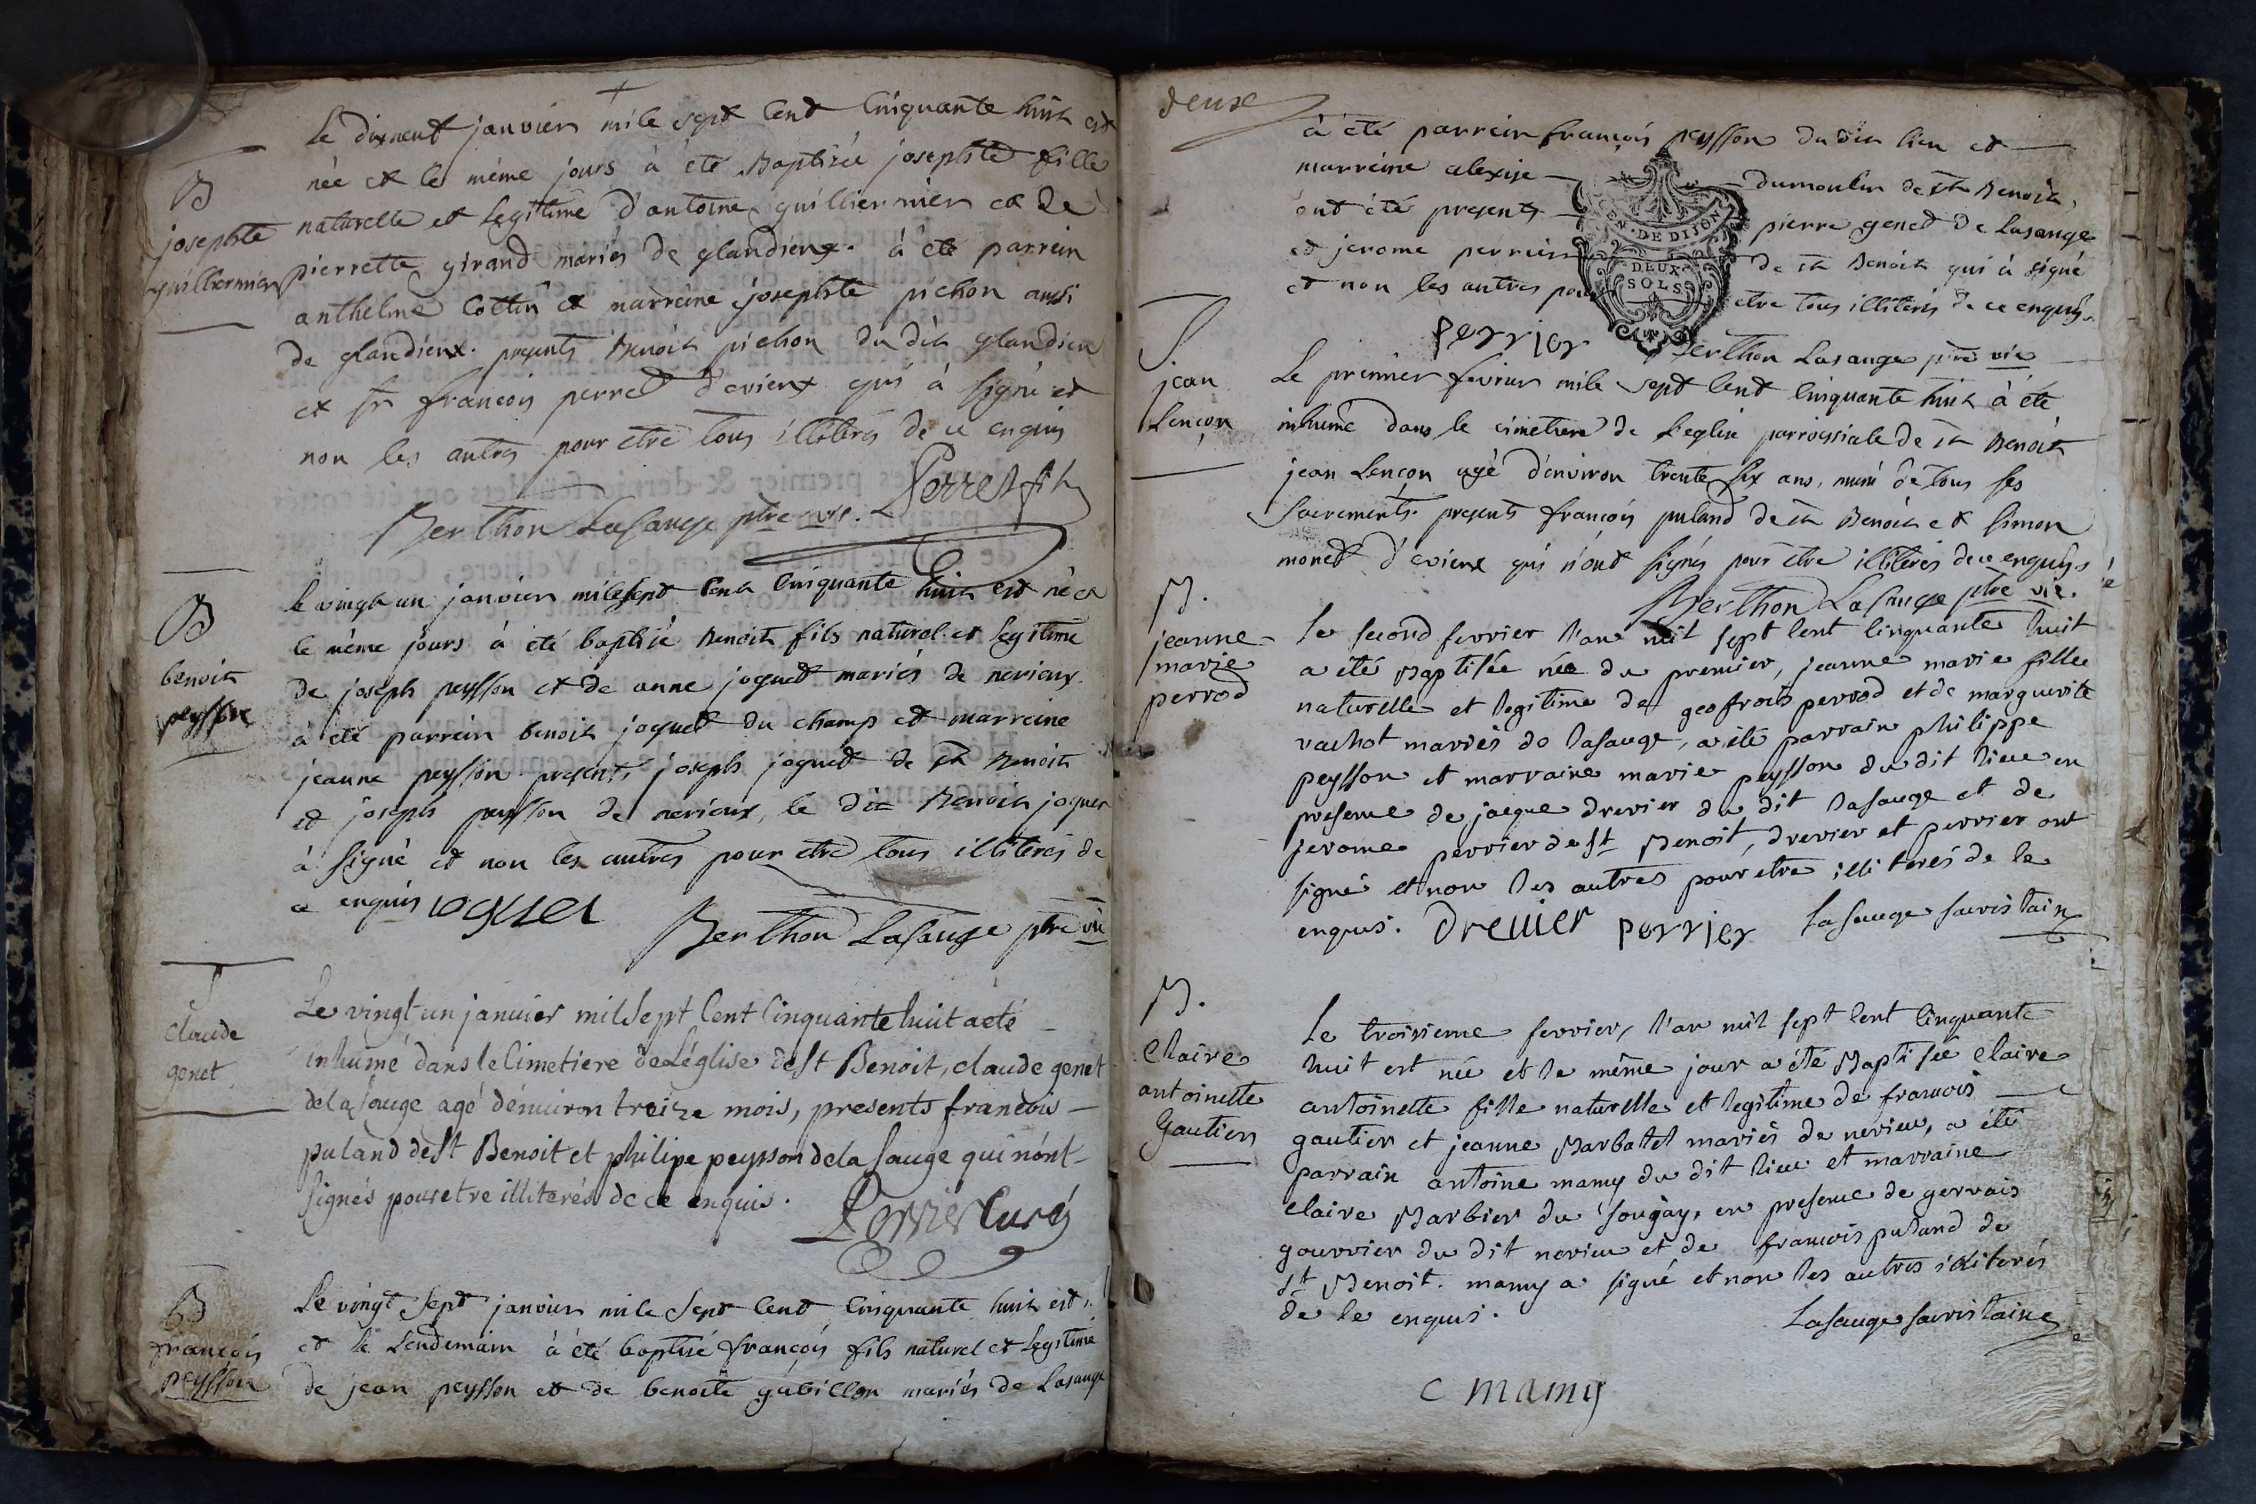 Le dixneuf janvier mile sept Cent Cinquante huit est
née et le même jours à été Baptizée josephte fille
B
josephte
guilliermier
naturelle et Legitime d'antoine guilliermier et de
pierrette girand mariés de glandieux. à été parrein
anthelme Cottin et marreine josephte pichon aussi
de glandieux. presents Benoit pichon du dit glandieu
et sr françois perret d'evieux qui à signé et
non les autres pour etre tous illiterés de ce enquis
Berthon Lasauge ptre vic. Perret fils
B
benoit
peysson
le vingt un janvier mile sept Cent Cinquante huit est né et
le même jours à été baptisé Benoit fils naturel et legitime
de joseph peysson et de anne joguet mariés de nerieux.
à été parrein benoit joguet du champ et marreine
jeanne peysson. presents joseph joguet de st Benoit
et joseph peysson de nerieux, le dit Benoit joguet
à signé et non les autres pour etre tous illiterés de
ce enquis joguet
Berthon Lasauge ptre vic
claude
genet
Le vingt un janvier mil sept Cent Cinquante huit a eté
inhumé dans le Cimetiere de L'église de st Benoit, claude genet
de la sauge agé d'environ treize mois, presents francois
puland de st Benoit et philipe peysson de la sauge qui n'ont
signés pour etre illiterés de ce enquis. Perrier Curé
B
françois
peysson
Le vingt sept janvier mile sept Cent Cinquante huit est
et le Lendemain à été baptisé françois fils naturel et Legitime
de jean peysson et de benoite gubillon mariés de Lasauge
deux
à été parrein françois peysson du dit lieu et
marreine alexise dumoulin de st Benoit,
ont été presents pierre genet de Lasauge
et jerome perrier de st Benoit qui à signé
et non les autres pour etre tous illiterés de ce enquis.
GEN. DE DIJON
DEUX
SOLS
perrier Berthon Lasauge ptre vic
S.
jean
Lençon
Le premier fevrier mile sept Cent Cinquante huit à été
inhumé dans le cimetiere de L'eglise parroissiale de st Benoit
jean Lençon agé d'environ trente six ans, muni de tous ses
Sacrements. presents françois puland de st Benoit et Simon
monet d'evieux qui n'ont signés pour etre illiterés de ce enquis
Berthon Lasauge ptre vic.
B.
jeanne
marie
perrod
Le second fevrier l'an mil sept Cent Cinquante huit
a été Baptisée née du premier, jeanne marie fille
naturelle et legitime de geofrois perrod et de marguerite
vachot mariés de lasauge, a été parrain philippe
peysson et marraine marie peysson du dit lieu en
presence de jacque drevier du dit lasauge et de
jerome perrier de st Benoit, drevier et perrier ont
signé et non les autres pour etre illiterés de ce
enquis. Drevier perrier Lasauge sacristain
B.
Claire
antoinette
Gautier
Le troisieme fevrier, l'an mil sept Cent Cinquante
huit est née et le même jour a été Baptisée Claire
antoinette fille naturelle et legitime de francois
gautier et jeanne Barbatet mariés de nerieu, a été
parrain antoine mamy du dit lieu et marraine
Claire Barbier du Sougay, en presence de gervais
gourrier du dit nerieu et de francois puland de
st Benoit. mamy a signé et non les autres illiterés
de ce enquis. Lasauge sacristain
C mamy